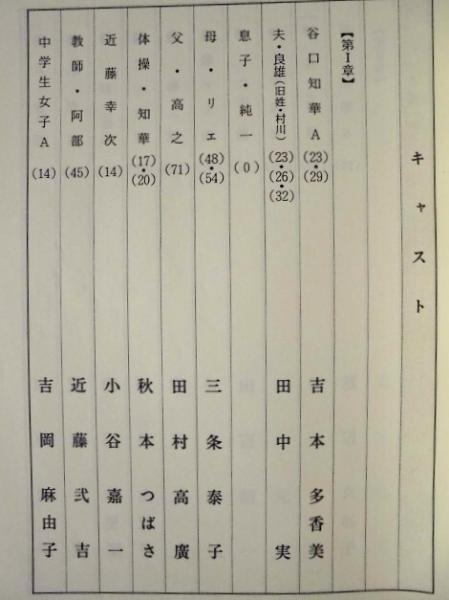 キャスト
【第Ⅰ章】
谷口知華A(23・29) 吉本多香美
夫・良雄(旧姓・村川)(23)・(26)・(32) 田中実
息子・純一(0)
母・リエ(48)・(54) 三条泰子
父・高之(71) 田村高廣
体操・知華(17)・(20) 秋本つばさ
近藤幸次(14) 小谷嘉一
教師・阿部(45) 近藤弐吉
中学生女子A(14) 吉岡麻由子